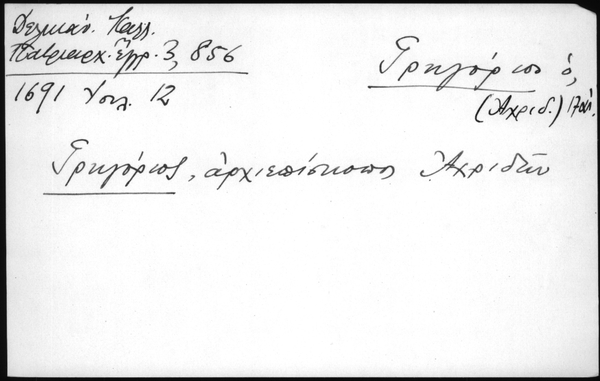 Δελικάν. Καλλ.
Πατριαρχ. ἔγγρ. 3, 856
1691 Ἰουλ. 12
Γρηγόριος ὁ,
(Ἀχριδ.)
Γρηγόριος, ἀρχιεπίσκοπος Ἀχριδῶν